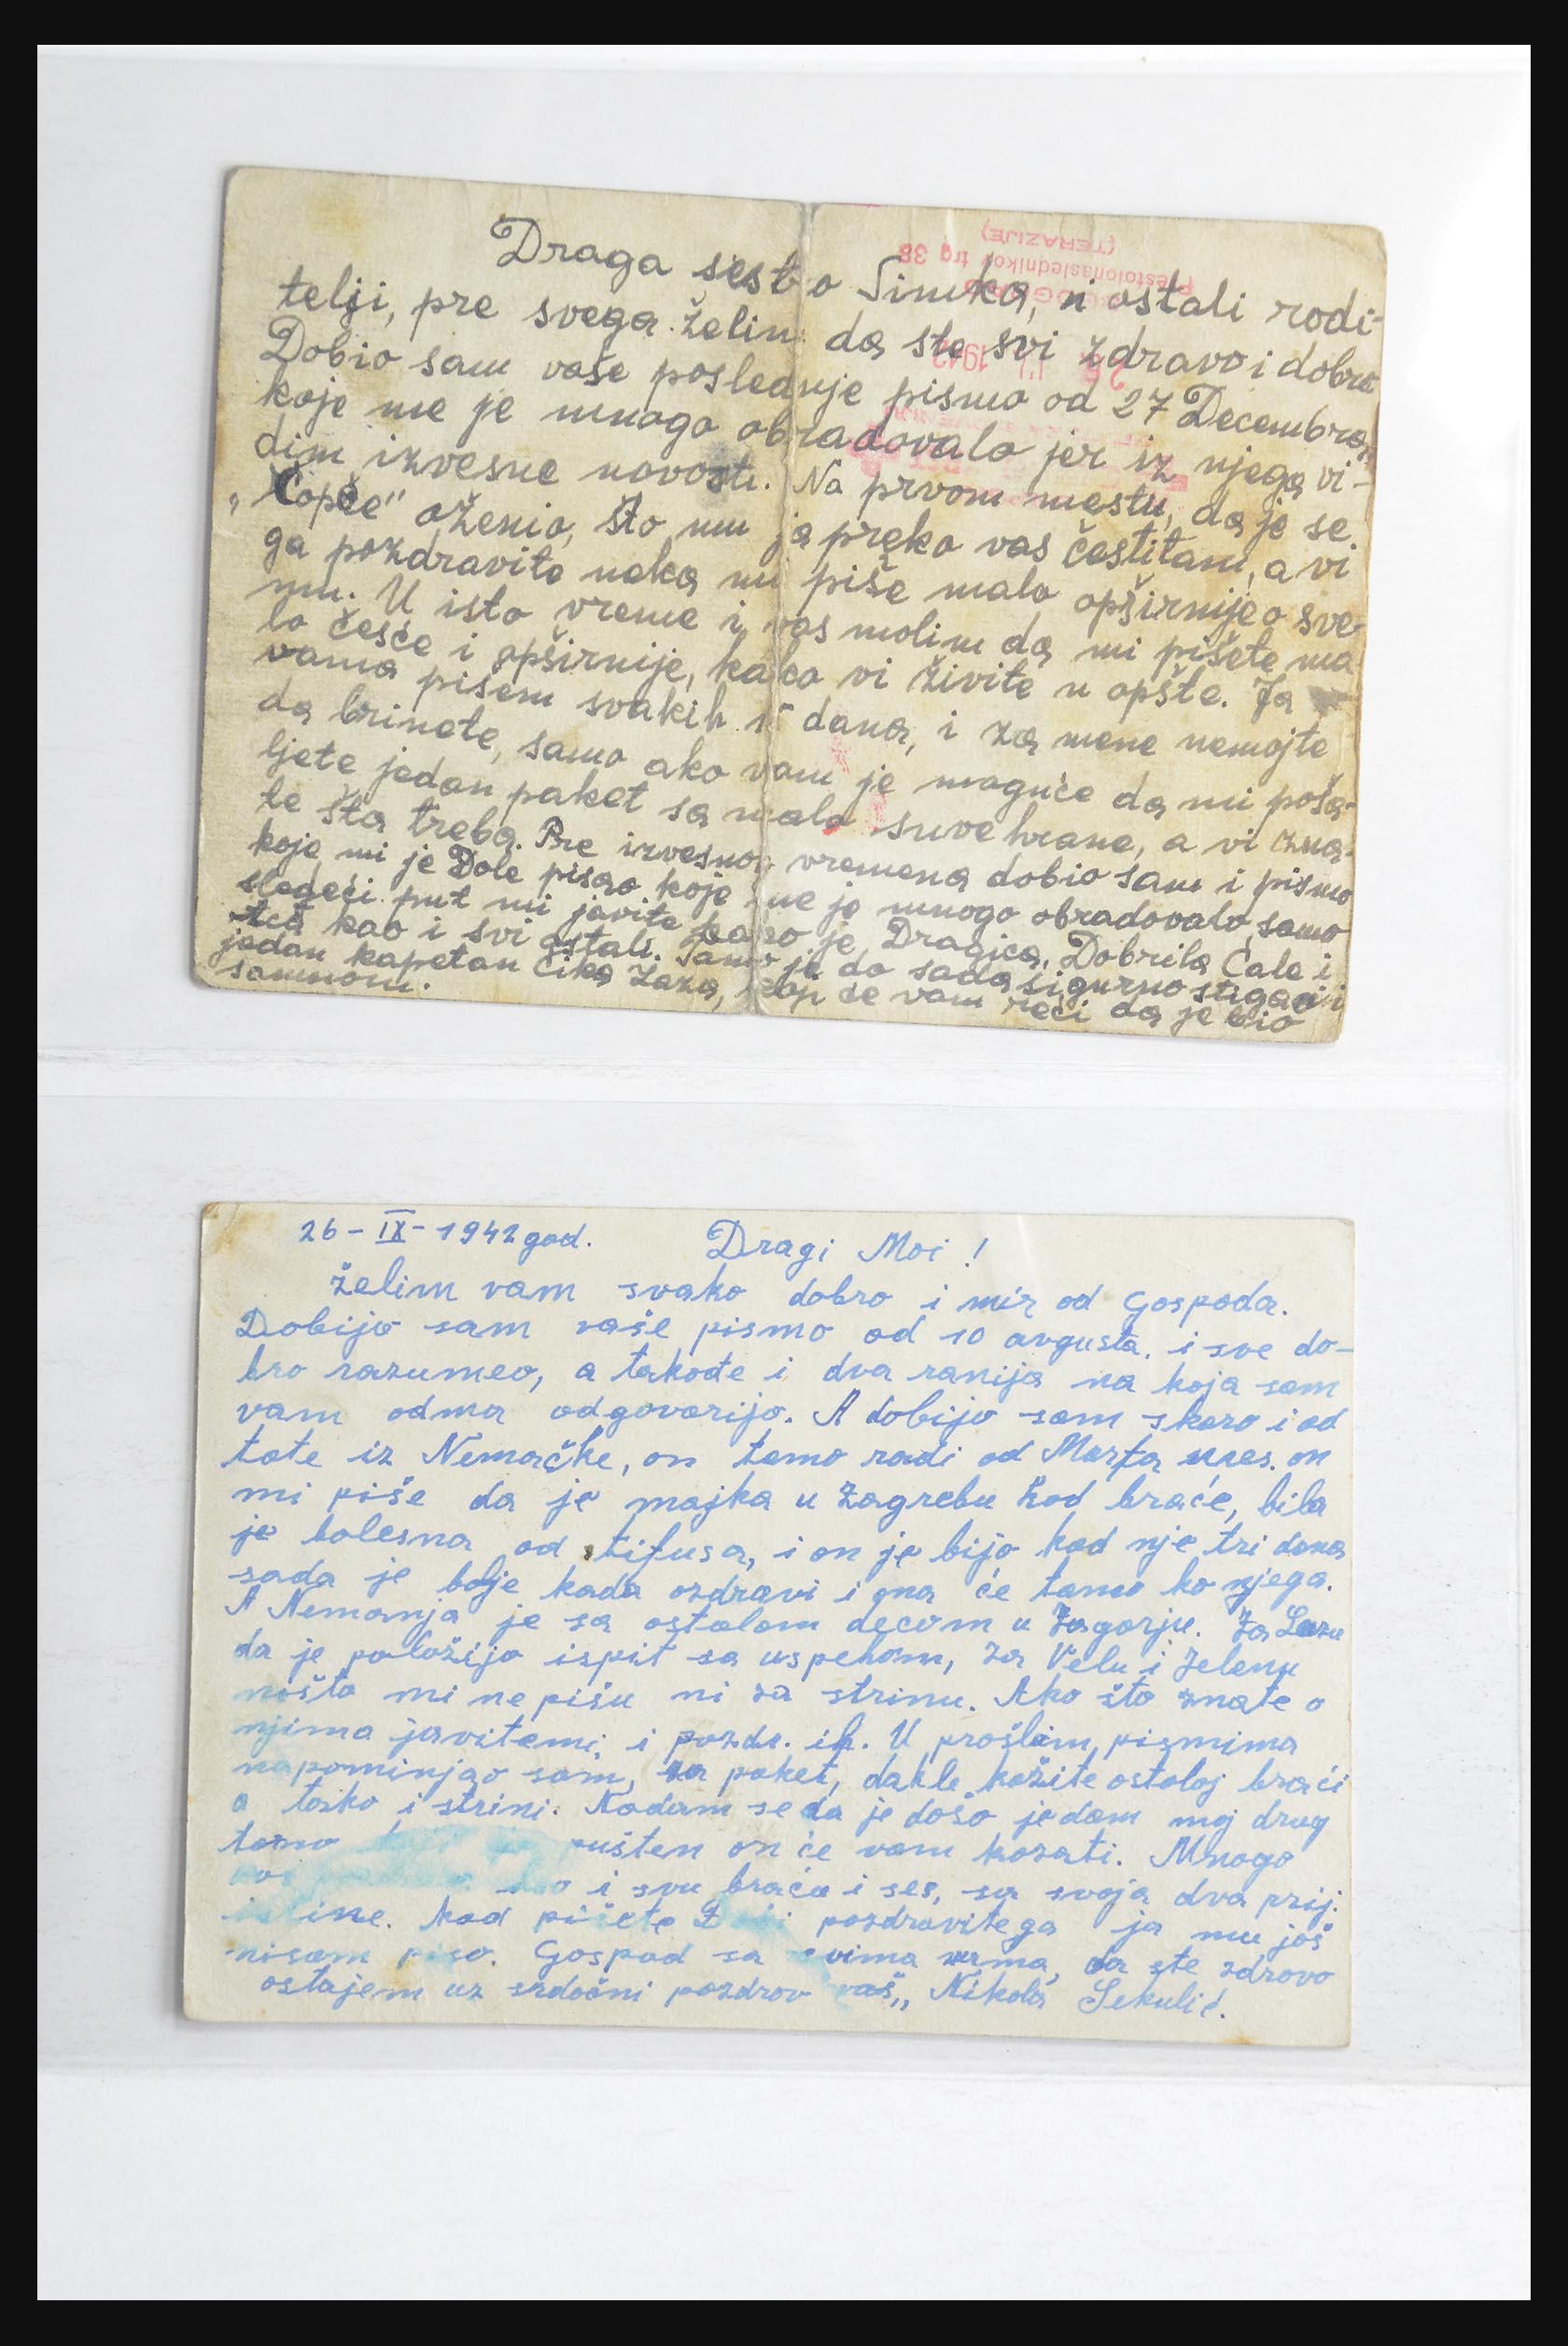 Draga sestro Simka, i ostali rodi-
telji, pre svega želim da ste svi zdravo i dobro
Dobio sam vaše poslednje pismo od 27 Decembra,
koje me je mnogo obradovalo jer iz njega vi-
dim izvesne novosti. Na prvom mestu, da je se
„Čopče" oženio, što mu ja preko vas čestitam, a vi
ga pozdravite neka mi piše malo opširnije o sve-
mu. U isto vreme i vas molim da mi pišete ma-
lo češće i opširnije, kako vi živite u opšte. Ja
vama pišem svakih dana, i za mene nemojte
da brinete, samo ako vam je moguće da mi poša-
ljete jedan paket sa malo suve hrane, a vi zna-
te šta treba. Pre izvesnog vremena dobio sam i pismo
koje mi je Dole pisao koje me je mnogo obradovalo, samo
sledeći put mi javite kako je Dragica, Dobrila Ćale i
kao i svi ostali. Tamo je do sada sigurno stigao i
jedan kapetan čika Zaza, koji će vam reći da je bio
samnom.
(TERAZIJE)
Prestolonaslednikov trg 38
1942
26-IX-1942 god. Dragi Moi!
želim vam svako dobro i mir od Gospoda.
Dobijo sam vaše pismo od 10 avgusta. i sve do-
bro razumeo, a takođe i dva ranija na koja sam
vam odma odgovorijo. A dobijo sam skoro i od
tate iz Nemačke, on tamo radi od Marta mes. on
mi piše da je majka u Zagrebu kod braće, bila
je bolesna od tifusa, i on je bijo kod nje tri dana
sada je bolje kada ozdravi i ona će tamo ko njega.
A Nemanja je sa ostalom decom u Zagorju. Za Lazu
da je položijo ispit sa uspehom, za Velu i Jelenu
ništa mi ne pišu ni za strinu. Ako što znate o
njima javitemi, i pozdr. ih. U prošlim pismima
napominjao sam, za paket, dakle kažite ostaloj braći
a tosko i strini. Nadam se da je došo jedam moj drug
tamo ušten on će vam kazati. Mnogo
vas i svu braću i ses, sa svoja dva prij.
ine. Kad pišete pozdravite ga ja mu još
nisam piso. Gospod sa svima vama, da ste zdravo
ostajem uz srdočni pozdrav vaš„ Nikola Sekulić.